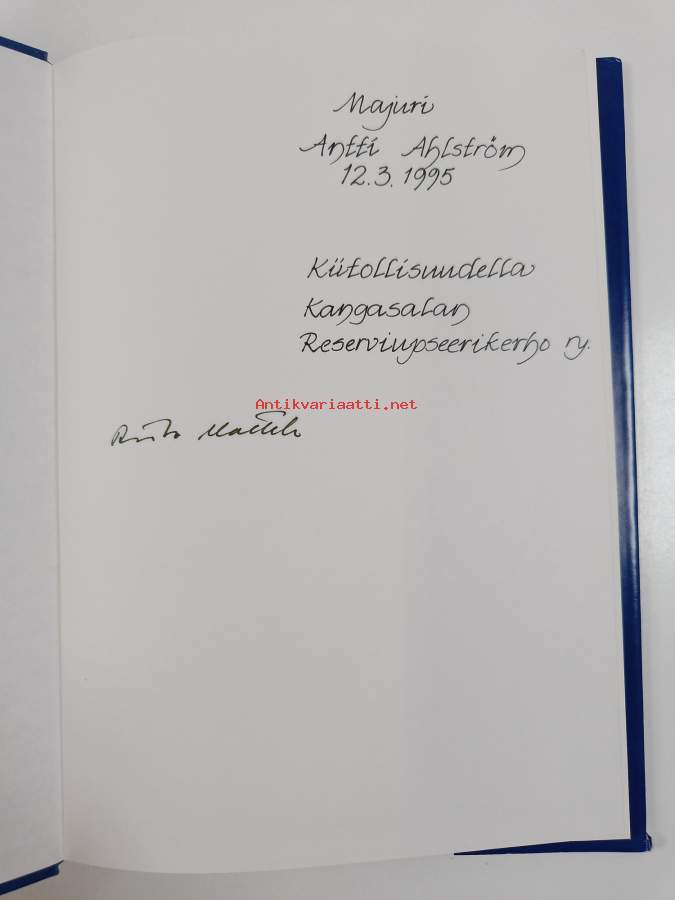 Majuri
Antti Ahlström
12.3.1995
Kiitollisuudella
Kangasalan
Reserviupseerikerho ry.
Antikvariaatti.net